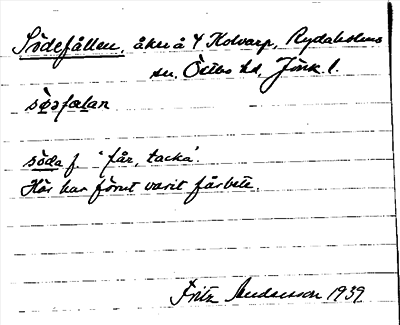 Södefållen, åker å 4 Kolvarp, Rydaholms
sn, Östbo hd, Jönk. l.
söᵊfælan
söda f. 'får, tacka'.
Här har förut varit fårbete.
Fritz Andersson 1939